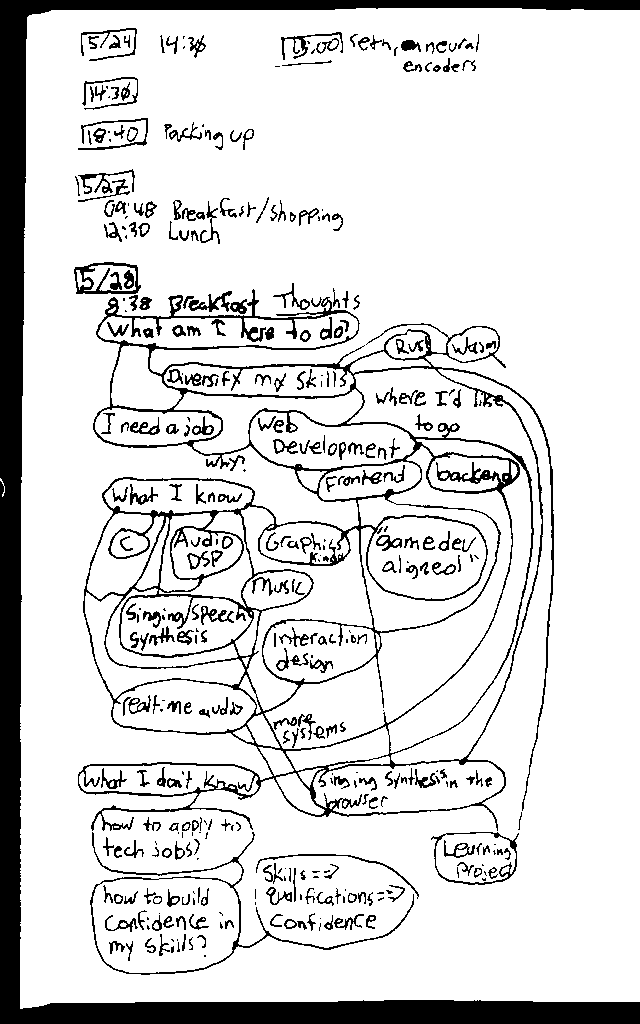 5/24 14:30
15:00 Seth, on neural
encoders
14:30
18:40 Packing up
5/27
09:48 Breakfast/Shopping
12:30 Lunch
5/28
8:38 Breakfast Thoughts
What am I here to do?
Rust
Wasm
Diversify my skills
where I'd like
to go
I need a job
why?
Web
Development
Frontend
backend
What I know
C
Audio
DSP
Graphics
kinda
"gamedev
aligned"
Music
Singing/speech
synthesis
Interaction
design
realtime audio
more
systems
What I don't know
Singing synthesis in the
browser
how to apply to
tech jobs?
Learning
Project
how to build
confidence in
my skills?
Skills ==>
qualifications ==>
confidence